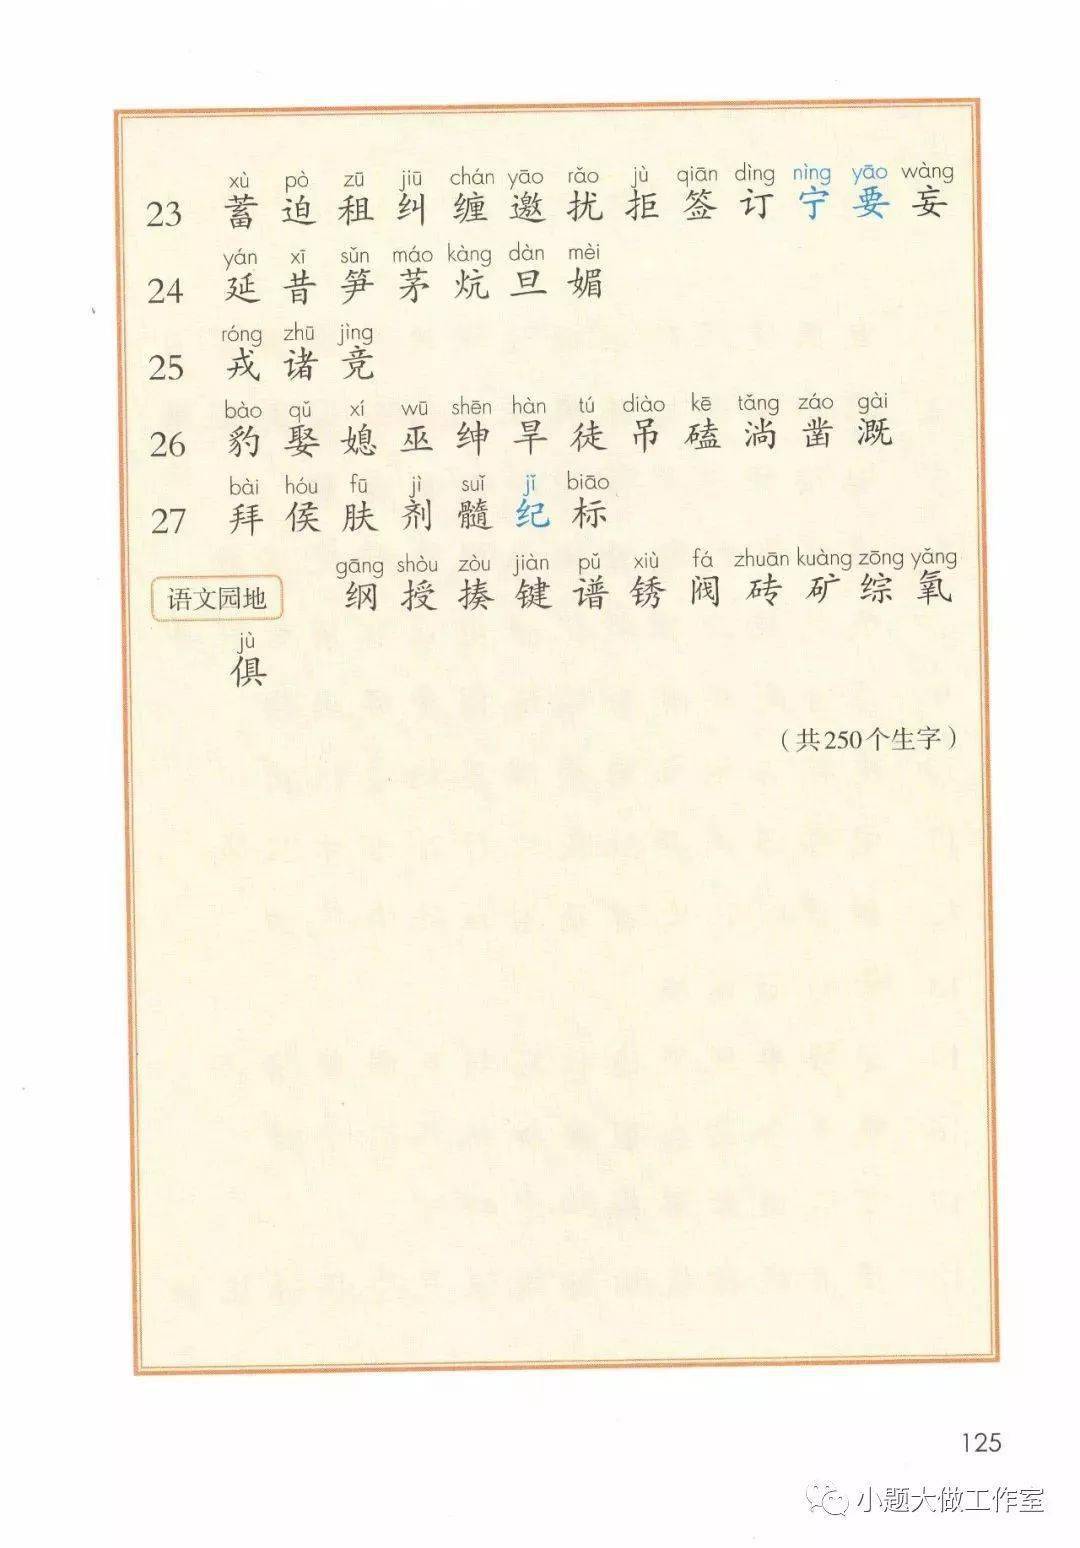 xù pò zū jiū chán yāo rǎo jù qiān dìng nìng yāo wàng
23 蓄 迫 租 纠 缠 邀 扰 拒 签 订 宁 要 妄
yán xī sǔn máo kàng dàn mèi
24 延 昔 笋 茅 炕 旦 媚
róng zhū jìng
25 戎 诸 竞
bào qǔ xí wū shēn hàn tú diào kē tǎng záo gài
26 豹 娶 媳 巫 绅 旱 徒 吊 磕 淌 凿 溉
bài hóu fū jì suǐ jǐ biāo
27 拜 侯 肤 剂 髓 纪 标
gāng shòu zòu jiàn pǔ xiù fá zhuān kuàng zōng yǎng
语文园地 纲 授 揍 键 谱 锈 阀 砖 矿 综 氧
jù
俱
（共250个生字）
125
小题大做工作室